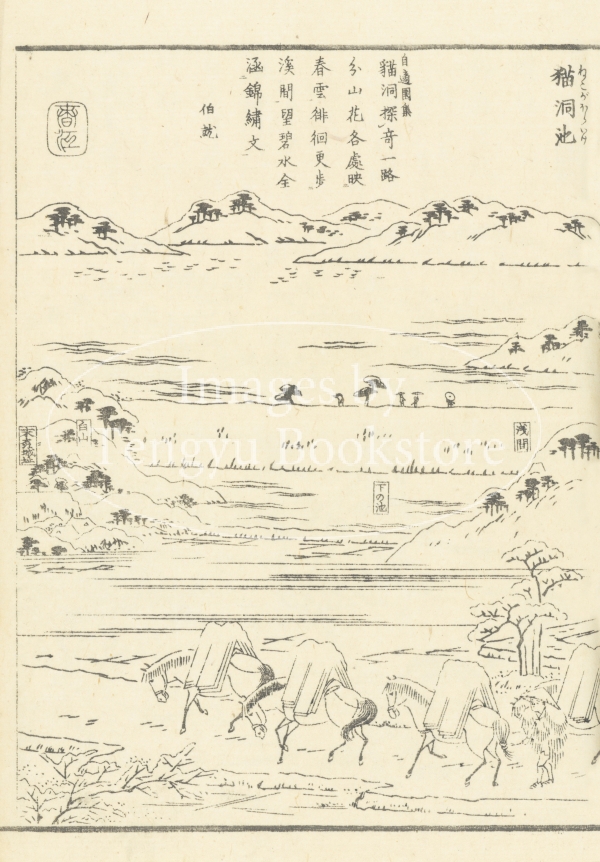 猫洞池
ねこがほらいけ
自適園集
貓洞探奇一路
分山花各處映
春雲徘徊更步
溪間望碧水全
涵錦繡文
浅間
下の池
白山
末森城址
Images by
Tengyu Bookstore